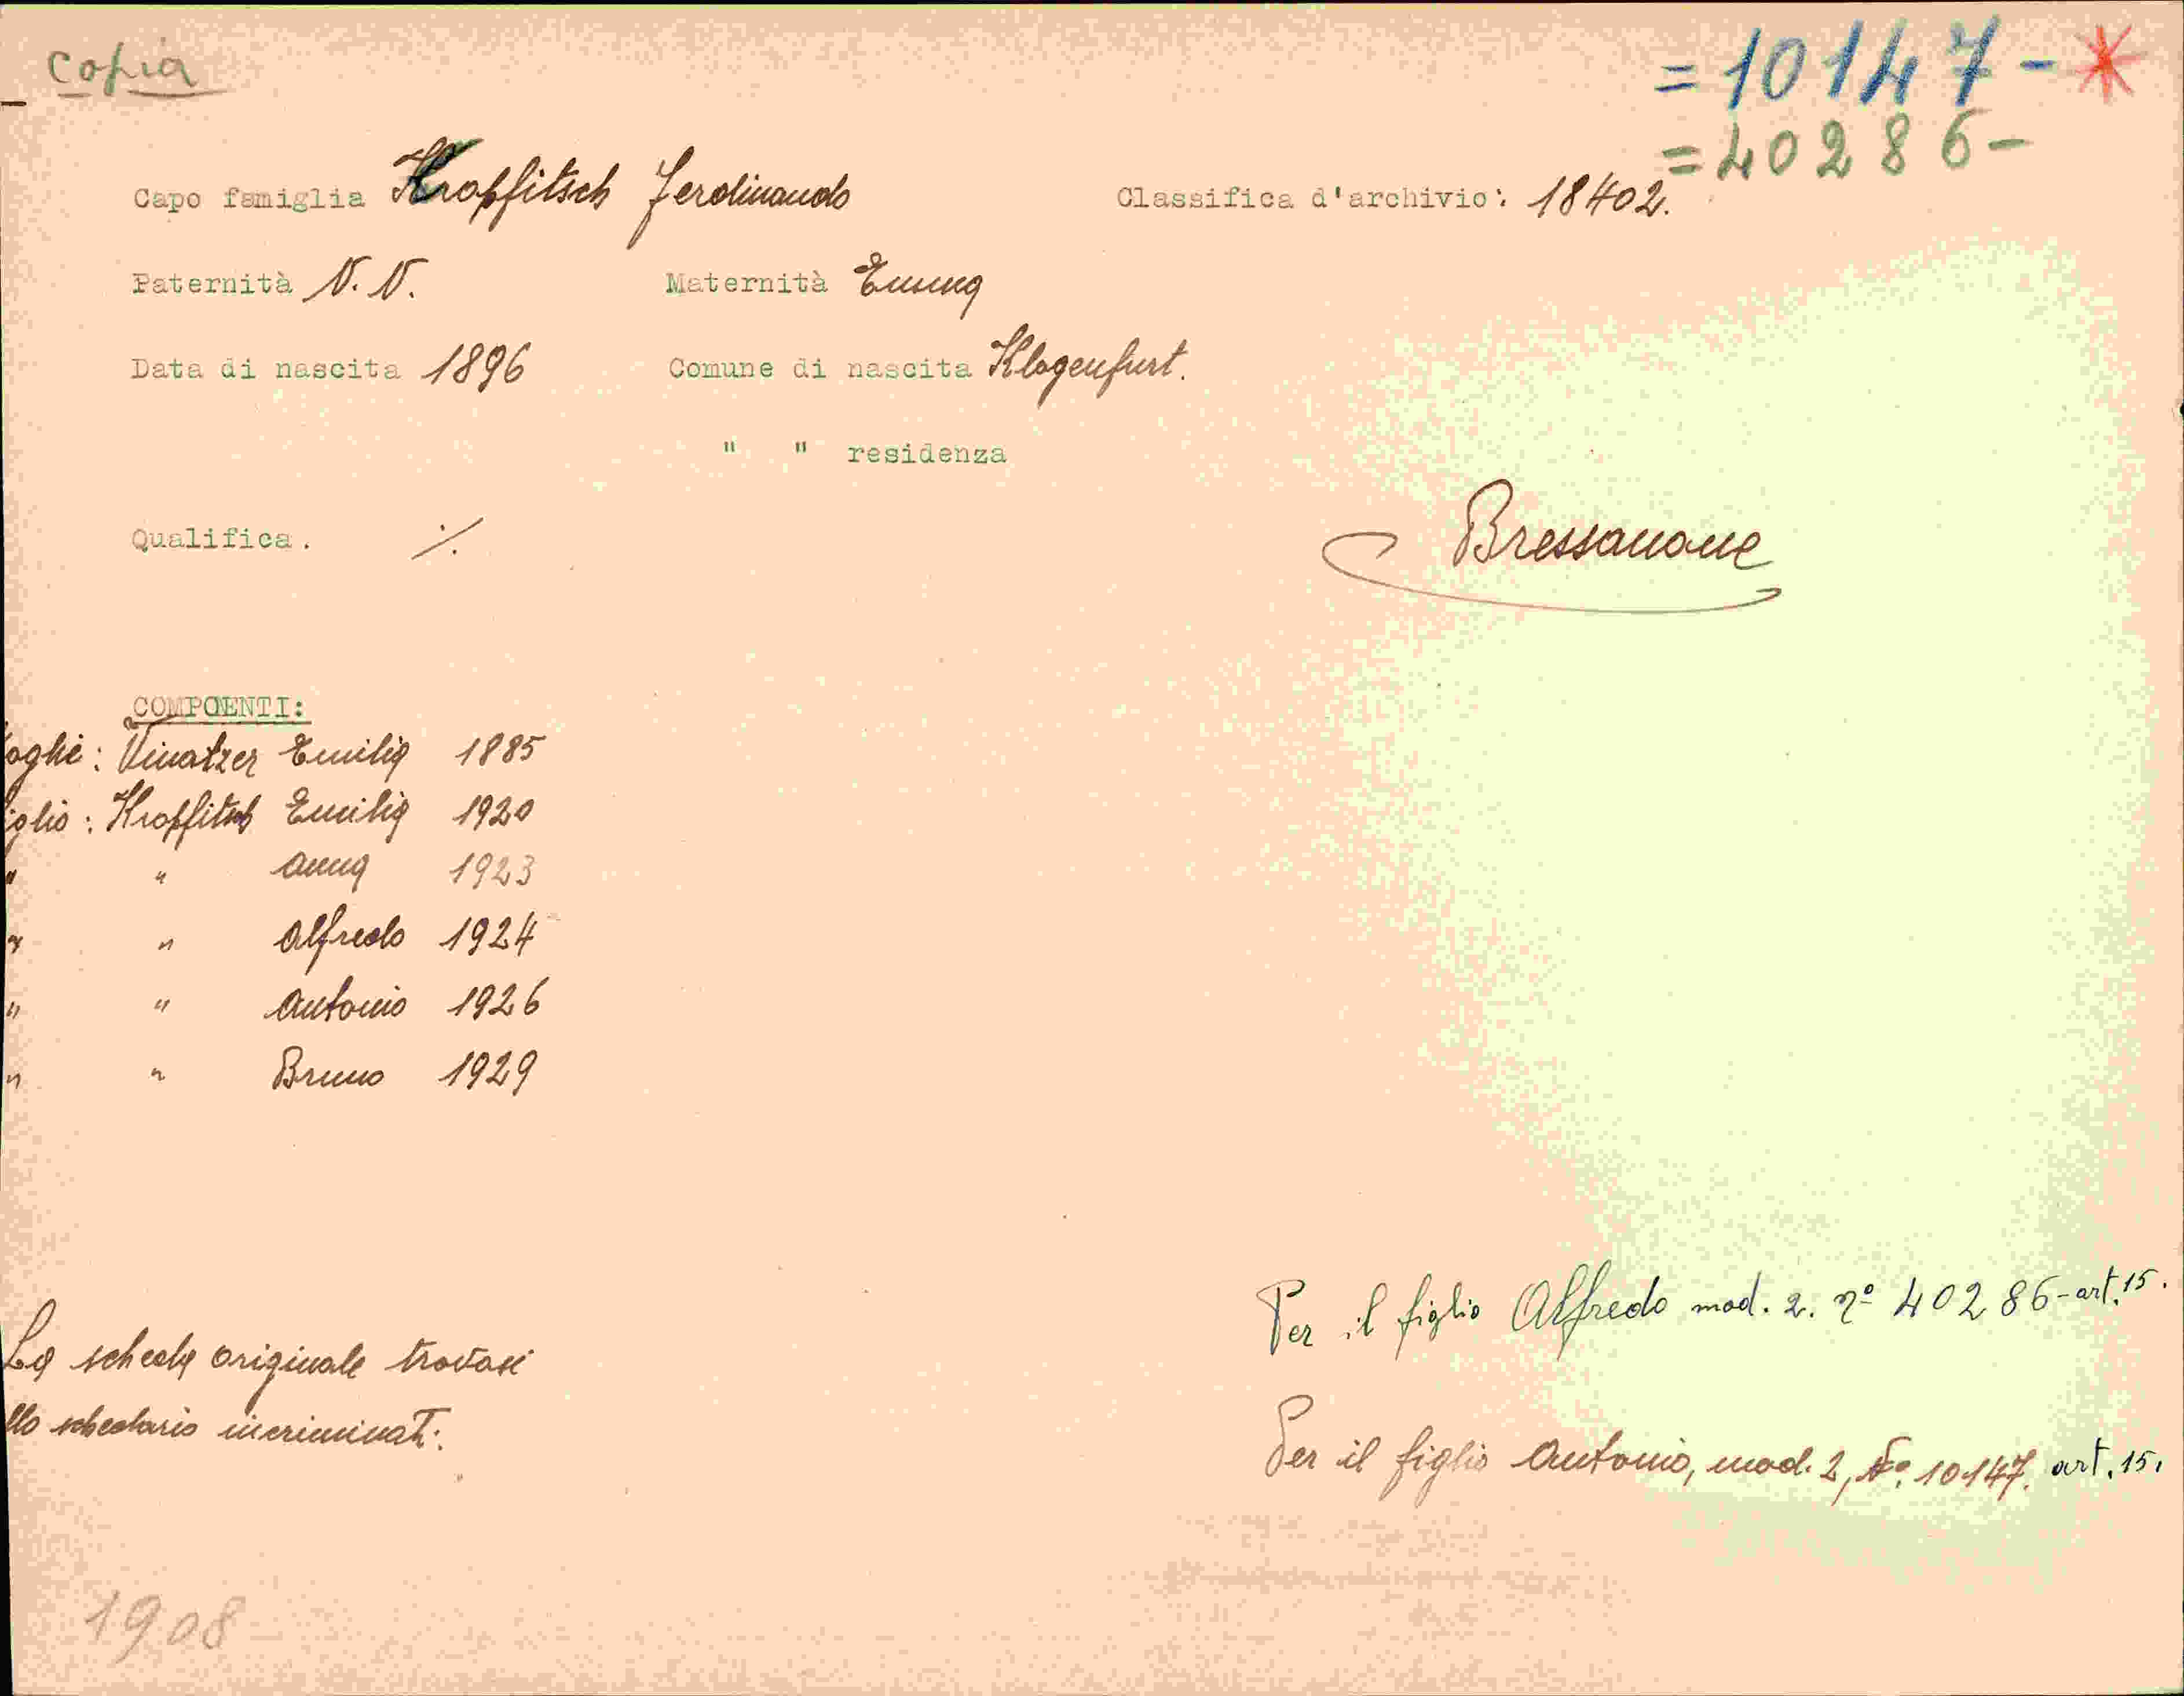 copia
= 10147 - *
= 40286 -
Capo famiglia Kropfitsch Ferdinando Classifica d'archivio: 18402.
Paternità N. N. Maternità Emma
Data di nascita 1896 Comune di nascita Klagenfurt.
" " residenza
Qualifica. ⁒ Bressanone
COMPOENTI:
oglie: Vinatzer Emilia 1885
iglio: Kropfitsch Emilia 1920
" " Anna 1923
" " Alfredo 1924
" " Antonio 1926
" " Bruno 1929
Per il figlio Alfredo mod. 2. nº 40286 - art. 15.
La scheda originale trovasi
llo schedario incriminati.
Per il figlio Antonio, mod. 2, Nº 10147. art. 15.
1908